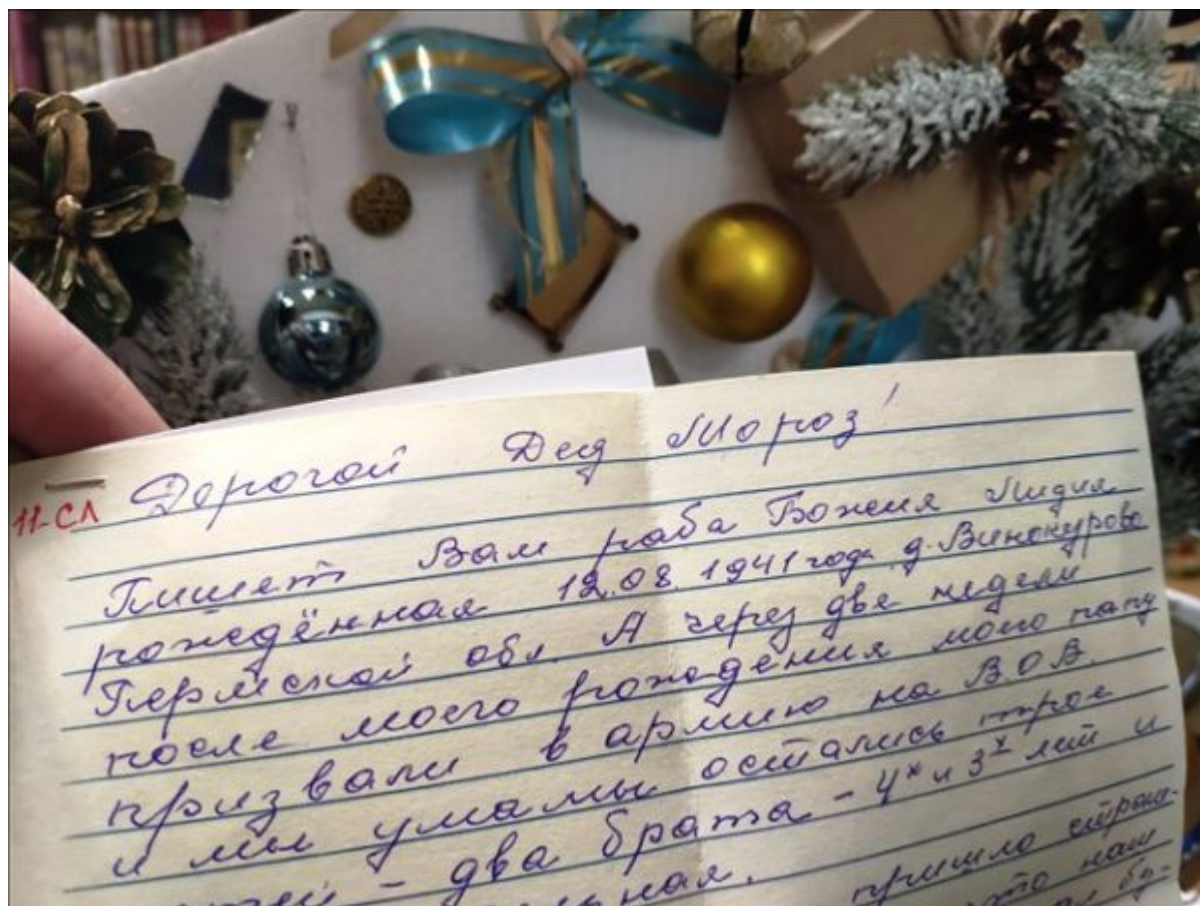 Дорогой Дед Мороз!
11-СЛ
Пишет Вам раба Божия Лидия
рождённая 12.08.1941 года д. Винокурово
Пермской обл. А через две недели
после моего рождения моего папу
призвали в армию на В.О.В.
и мы у мамы остались трое
- два брата - 4х и 3х лет и
пришло страш-
что наш